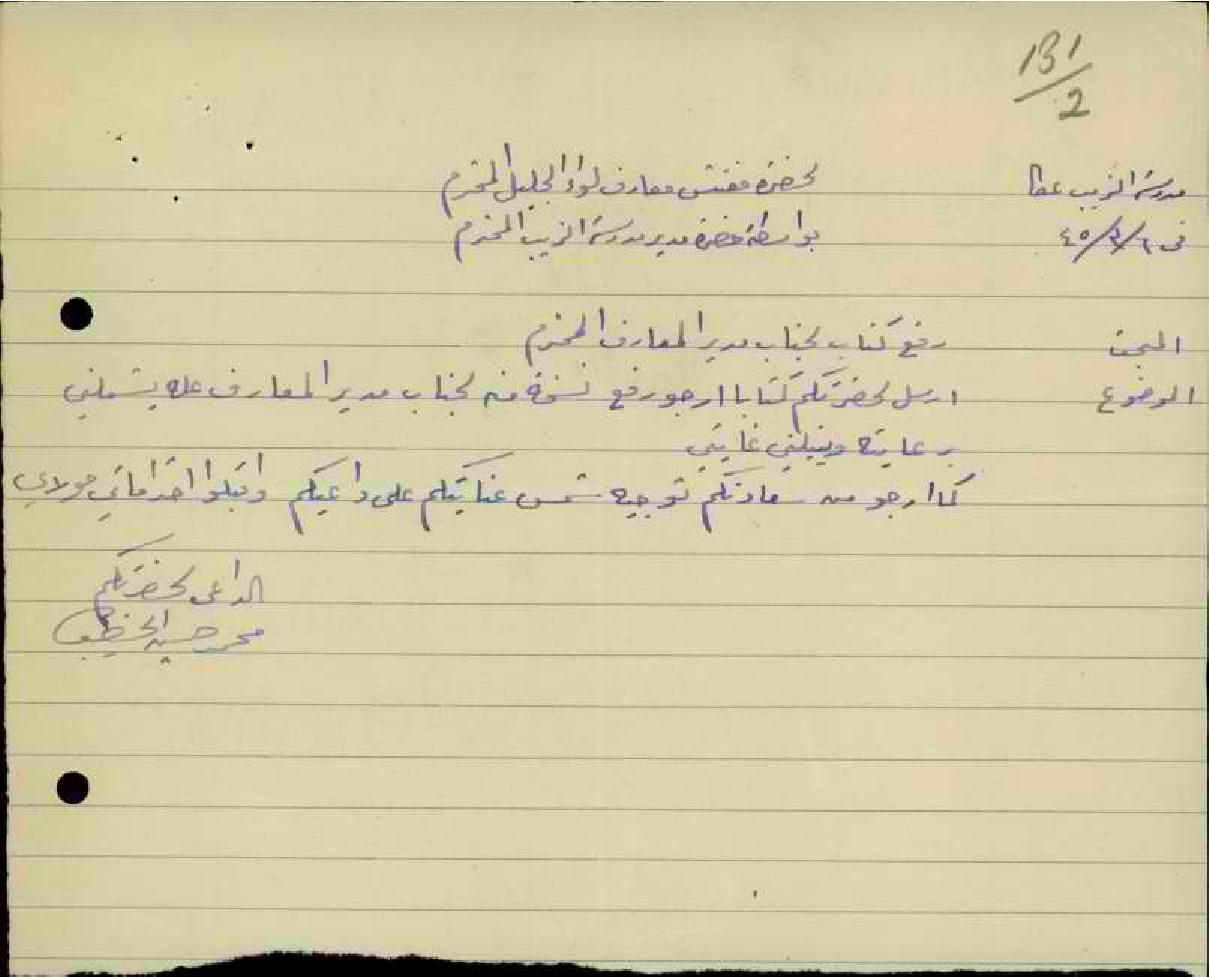 131/2
مدرسة الزيب عكا
لحضرة مفتش معارف لواء الجليل المحترم
في ٦/٣/٤٥
بواسطة حضرة مدير مدرسة الزيب المحترم
المبحث
رفع كتاب لجناب مدير المعارف المحترم
الموضوع
ارسل لحضرتكم كتابا ارجو رفع نسخة منه لجناب مدير المعارف عله يشملني
برعايته وينيلني غايتي
كما ارجو من سعادتكم توجيه شمس عنايتكم على داعيكم واقبلوا احتراماتي مولاي
الداعي لحضرتكم
محمد حسن الخطيب